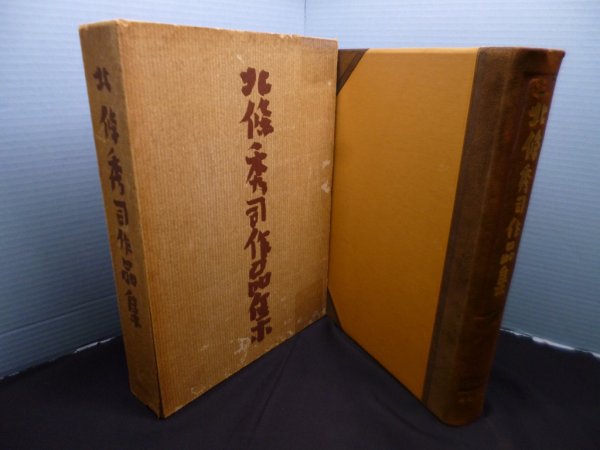 北條秀司作品集
北條秀司作品集
北條秀司作品集